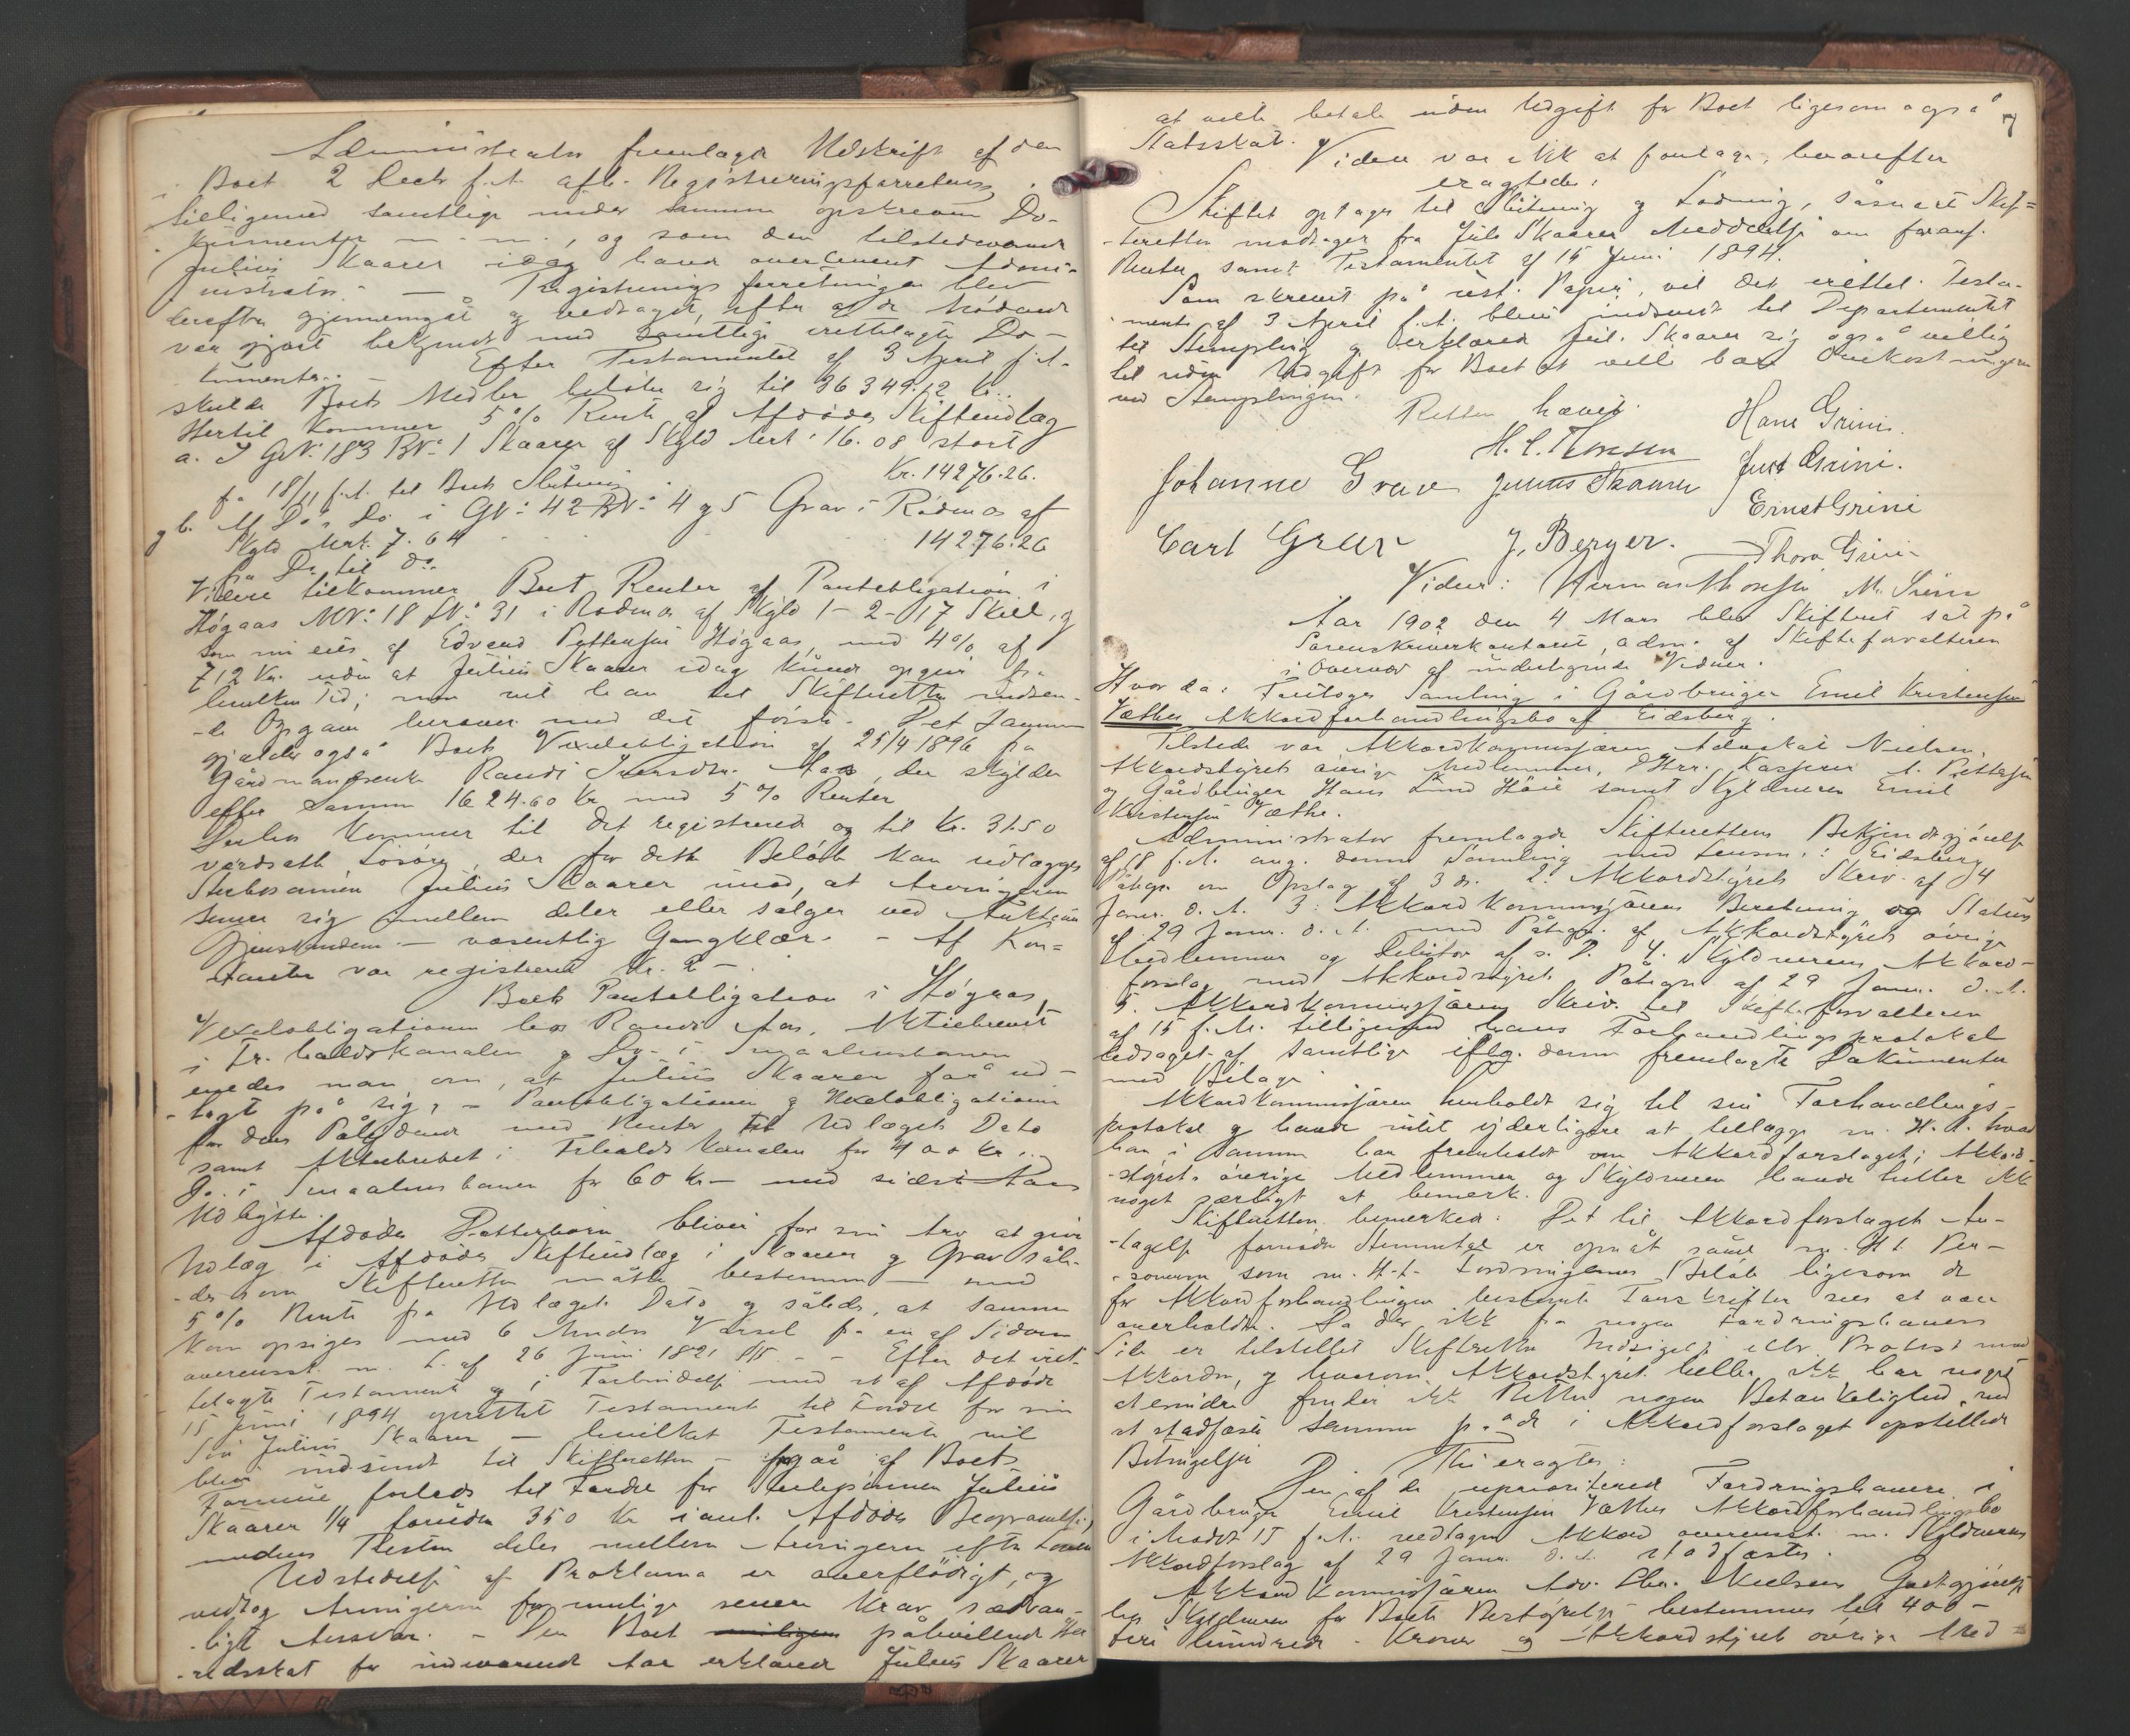 Administrator fremlagde Udskrift af den
i Boet 2 Decb f.A. afh. Registreringsforretning
tilligemed samtlige under samme opskrevne Do-
kumenter, og som den tilstedeværende
Julius Skaarer idag havde overleveret Admi-
nistrator. — Registreringsforretningen blev
derefter gjennemgåt og vedtaget, efter at de Mødende
var gjort bekjendt med samtlige irettelagte Do-
kumenter. — Efter Testamentet af 3 April f.A.
skulde Boets Midler beløbe sig til 36349.12
Hertil kommer 5% Rente af Afdødes Skifteudlæg
a. I GNo: 183 BNo: 1 Skaarer af Skyld Mrk: 16.08 stort
Kr. 14276.26.
fra 18/11 f.A. til Boets Slutning
og b. Af Do's Do i GNo: 42 BNo: 4 og 5 Grav i Rødenes af
Skyld Mrk. 7.64 14276.26
fra Do til Do.
Videre tilkommer Boet Renter af Pantobligation i
Høgaas MNo: 18 LNo: 31 i Rødenes af Skyld 1 - 2 - 17 Skill. og
som nu eies af Edvard Pettersen Høgaas, med 4% af
712 Kr. uden at Julius Skaarer idag kunde opgive fra
hvilken Tid; men vil han til Skifteretten indsen-
de Opgave herover med det første. Det samme
gjælder også Boets Vexelobligation af 25/4 1896 fra
Gårdmandsenke Randi Iversdtr. Aas, der skylder
efter samme 1624.60 Kr med 5% Renter
Desuden kommer til det registrerede og til Kr. 31.50
værdsatte Løsøre, der for dette Beløb kan udlægges
Stervbosønnen Julius Skaarer imod, at Arvingerne
senere sig imellem deler eller sælger ved Auktion
Gjenstandene. — væsentlig Gangklær. - Af Kon-
tanter var registreret Kr. 2 -.
Boets Pantobligation i Høgaas,
Vexelobligationen hos Randi Aas, Aktiebrevet
i Fr.haldskanalen og Do. i Smaalensbanen
enedes man om, at Julius Skaarer får ud-
lagt på sig, - Pantobligationen og Vexelobligationen
for dens Pålydende med Renter til Udlægets Dato
samt Aktiebrevet i Fr.haldskanalen for 400 Kr.
Do. i Smaalensbanen for 60 Kr - med sidste Aars
Udbytte.
Afdødes Datterbørn bliver for sin Arv at give
Udlæg i Afdødes Skifteudlæg i Skaarer og Grav såle-
des som Skifteretten måtte bestemme — med
5% Rente fra Udlægets Dato og således, at samme
kan opsiges med 6 Mndrs Varsel fra en af Siderne
overensst. m. L. af 26 Juni 1821 - Efter det iret-
telagte Testamente og i Forbindelse med et af Afdøde
15 Juni 1894 oprettet Testamente til Fordel for sin
Søn Julius Skaarer — hvilket Testamente vil
blive indsendt til Skifteretten - fragår af Boets
Formue forlods til Fordel for Stervbosønnen Julius
Skaarer 1/4 foruden 350 Kr i anl. Afdødes Begravelse,
medens Resten deles mellem Arvingerne efter Loven
Udstedelse af Proklama er overflødigt, og
vedtog Arvingerne for mulige senere Krav sædvan-
-ligt Ansvar. - Den Boet påhvilende Her
-redsskat for indeværende Aar erklærede Julius Skaarer
7
at ville betale uden Udgift for Boet ligesom også
Statsskat.
Videre var ikke at foretage, hvorefter
eragtedes:
Skiftet optages til Slutning og Lodning, såsnart Skif-
teretten modtager fra Juls Skaarer Meddelelse om foranf.
Renter samt Testamentet af 15 Juni 1894.
Som skrevet på ust. Papir, vil det irettel. Testa-
mente af 3 April f.A. blive indsendt til Departementet
til Stempling og erklærede Jul. Skaarer sig også villig
til uden Udgift for Boet at ville bære Omkostningerne
ved Stemplingen.
Retten hævet.
Hans Grini.
H. C. Thoresen
Johanne Grav Julius Skaarer Just Grini.
Ernst Grini
Carl Grav J. Berger. Thora Grini
Vidner: Herman Thoresen M. Grini
Aar 1902 den 4 Mars blev Skifteret sat på
Sorenskriverkontoret, adm. af Skifteforvalteren
i Overvær af undertegnede Vidner.
Hvor da: Foretoges Samling i Gårdbruger Emil Kristensen
Væthes Akkordforhandlingsbo af Eidsberg.
Tilstede var Akkordkommissæren Advokat Nielsen,
Akkordstyrets øvrige Medlemmer, Dhrr. Kasserer A. Pettersen
og Gårdbruger Hans Lund Høie samt Skyldneren Emil
Kristensen Væthe.
Administrator fremlagde Skifterettens Bekjendtgjørelse
af 18 f.M. ang. denne Samling med Lensm. i Eidsberg
Påtegn. om Opslag af 3 ds. 2: Akkordstyrets Skriv. af 24
Janr. d.A. 3: Akkordkommissærens Beretning og Status
af 29 Janr. d.A. med Påtegn. af Akkordstyrets øvrige
Medlemmer og Debitor af s. D. 4. Skyldnerens Akkord-
forslag med Akkordstyrets Påtegn. af 29 Janr. d.A.
5. Akkordkommissærens Skriv. til Skifteforvalteren
af 15 f.M. tilligemed hans Forhandlingsprotokol
ledsaget af samtlige iflg. denne fremlagte Dokumenter
med Bilage.
Akkordkommissæren henholdt sig til sin Forhandlings-
protokol og havde intet yderligere at tillægge m. H. t. hvad
han i samme har fremholdt om Akkordforslaget; Akkord-
-styrets øvrige Medlemmer og Skyldneren havde heller ikke
noget særligt at bemerke.
Skifteretten bemerker: Det til Akkordforslagets An-
-tagelse fornødne Stemmetal er opnåt såvel m. H. t. Per-
-sonerne som m. H. t. Fordringernes Beløb ligesom de
for Akkordforhandlingen bestemte Forskrifter sees at være
overholdte. Da der ikke fra nogen Fordringshavers
Side er tilstillet Skifteretten Indsigelse eller Protest mod
Akkorden, og hvorom Akkordstyret heller ikke har noget
at erindre finder ikke Retten nogen Betænkelighed ved
at stadfæste samme på de i Akkordforslaget opstillede
Betingelser.
Thi eragtes:
Den af de uprioriterede Fordringshavere i
Gårdbruger Emil Kristensen Væthes Akkordforhandlingsbo
i Mødet 15 f.M. vedtagne Akkord overensst. m. Skyldnerens
Akkordforslag af 29 Janr. d.A. stadfæstes.
Akkordkommissæren Adv. Chr. Nielsens Godtgjørelse
hos Skyldneren for Boets Bestyrelse bestemmes til 400 -
fire hundrede - Kroner og Akkordstyrets øvrige Med-